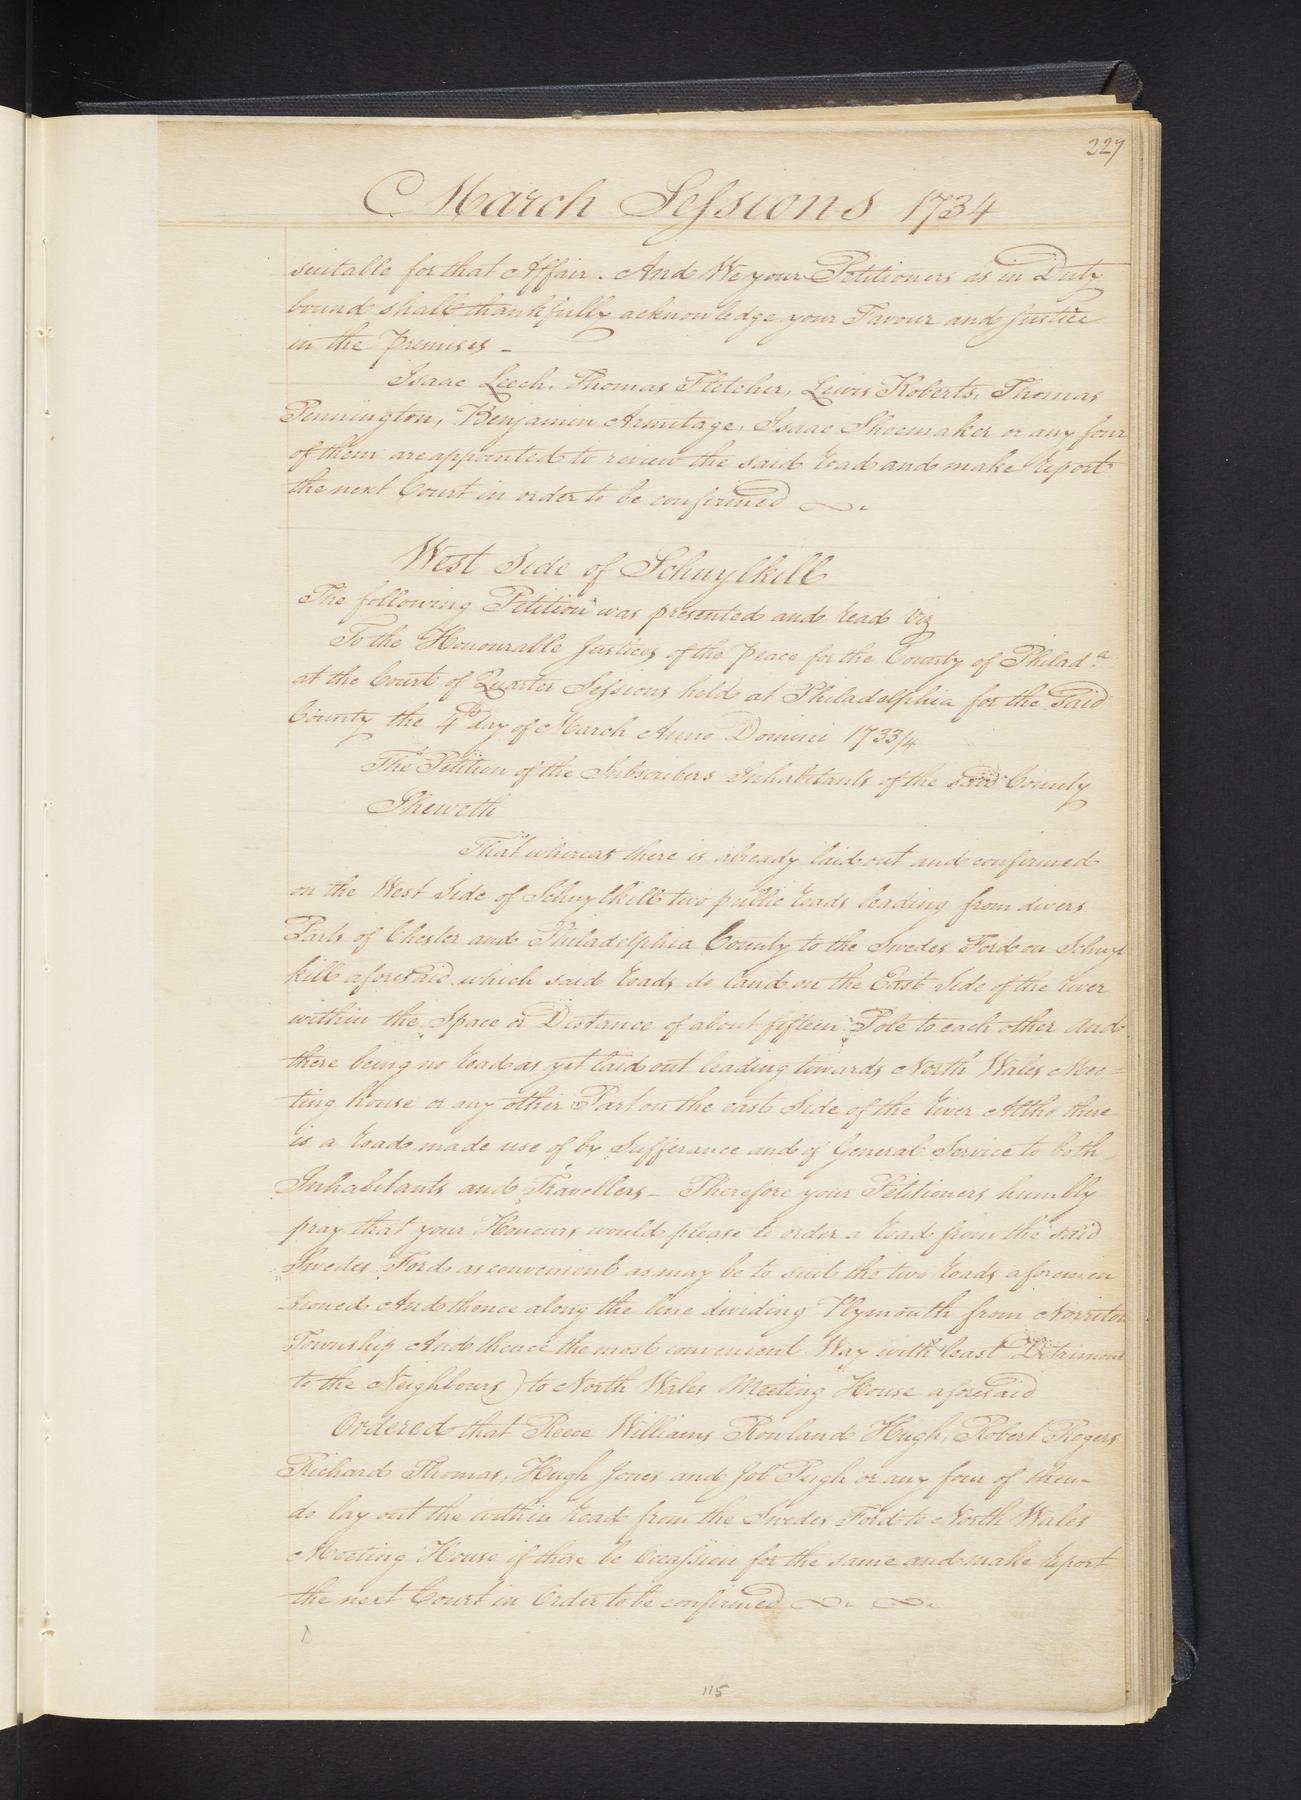 227
March Sessions 1734
suitable for that Affair. And We your Petitioners as in Duty
bound shall thankfully acknowledge your Favour and Justice
in the Premises -
Isaac Leech, Thomas Fletcher, Lewis Roberts, Thomas
Pennington, Benjamin Armitage, Isaac Shoemaker or any four
of them are appointed to review the said Road and make Report
the next Court in order to be confirmed
West Side of Schuylkill
The following Petition was presented and read Viz
To the Honourable Justices of the Peace for the County of Philada
at the Court of Quarter Sessions held at Philadelphia for the Said
County the 4th day of March Anno Domini 1733/4
The Petition of the Subscribers Inhabitants of the said County
Sheweth
That whereas there is already laid out and confirmed
on the West Side of Schuylkill two public Roads leading from divers
Parts of Chester and Philadelphia County to the Swedes Ford on Schuyl
kill aforesaid which said Roads do land on the East Side of the River
within the Space or Distance of about fifteen Pole to each other and
there being no Road as yet laid out leading towards North Wales Mee=
ting house or any other Part on the east Side of the River Altho there
is a Road made use of by Sufferance and of General Service to both
Inhabitants and Travellers - Therefore your Petitioners humbly
pray that your Honours would please to order a Road from the said
Swedes Ford as convenient as may be to suit the two Roads aforemen
tioned And thence along the line dividing Plymouth from Norriton
Township And thence the most convenient Way with least Detriment
to the Neighbours) to North Wales Meeting House aforesaid
Ordered that Reece Williams Rowland Hugh, Robert Rogers
Richard Thomas, Hugh Jones and Job Pugh or any four of them
do lay out the within Road from the Swedes Ford to North Wales
Meeting House if there be Occasion for the same and make Report
the next Court in Order to be confirmed
D
115